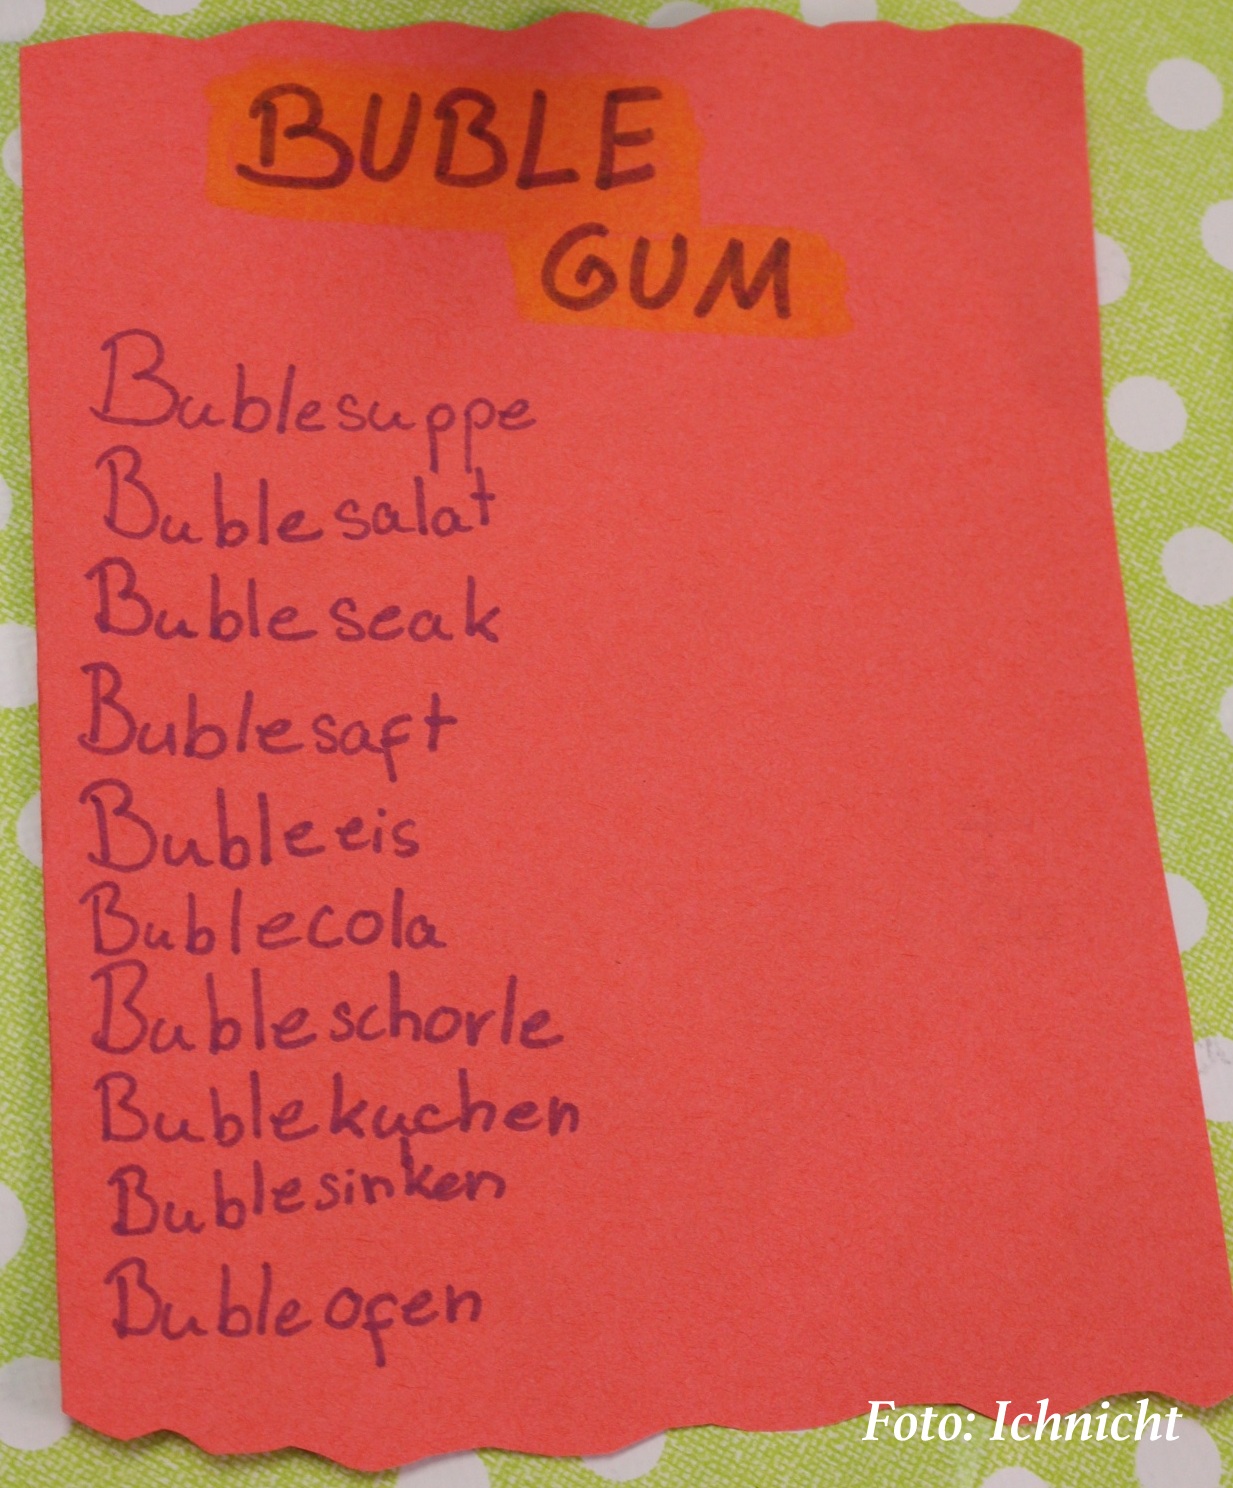 BUBLE
GUM
Bublesuppe
Bublesalat
Bubleseak
Bublesaft
Bubleeis
Bublecola
Bubleschorle
Bublekuchen
Bublesinken
Bubleofen
Foto: Ichnicht